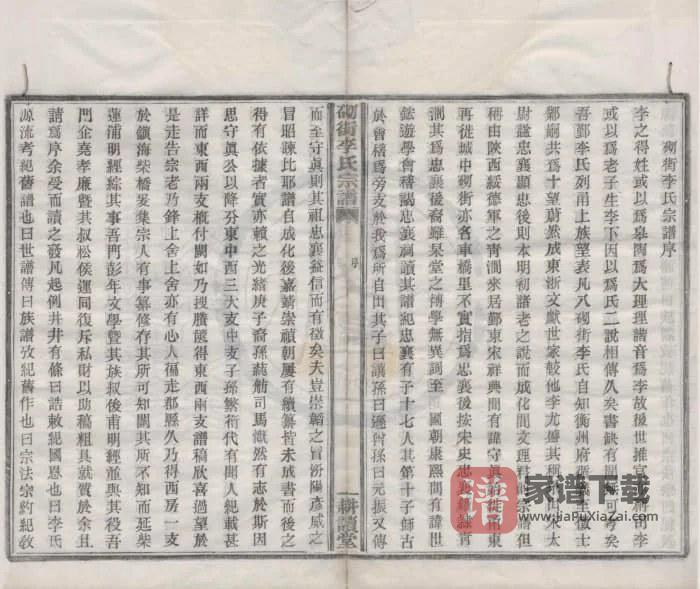 砌街李氏宗譜序
李之得姓或以爲臯陶爲大理理譜音爲李故後世推宫
李
或以爲老子生李下因以爲氏二說相傳久矣書缺有間
可考矣
吾鄞李氏列甬上族望表凡八砌街李氏自知衡州府
士
鄭嗣共爲十望蔚然成東浙文獻世家較他李尤盛其稱
太
尉謚忠襄顯忠後則本明初諸老之說而成化間文理
宗譜但
稱由陝西綏德軍之青澗來居鄞東宋祥興間有諱守眞
徙
東
再徙城中砌街亦名車橋里不實指爲忠襄後按宋史忠襄
隸青
澗其爲忠襄後裔雖杲堂之博學無異詞至
國朝康熙間有諱
鋐遊學會稽謁忠襄祠讀其譜紀忠襄有子十七人其第十子師古
於會稽爲旁支於我爲所自出其子曰讓孫曰遜曾孫曰元振又傳
而至守眞則其祖忠襄益信而有徵矣夫豈崇韜之冒汾陽彥威之
冒昭諫比耶譜自成化後嘉靖崇禎朝屢有續纂皆未成書而後之
得有依據者實亦賴之光緒庚子裔孫
司馬慨然有志於斯因
思守眞公以降分東中西三大支中支子孫繁衍代有聞人紀載已
詳而東西兩支概付闕如乃搜賸篋得東西兩支譜稿欣喜過望於
是走告宗老乃鋒上舍上舍亦有心人徧走郡縣久乃得西房一支
於鎭海柴橋爰集宗人有事纂修存其所可知闕其所不知而延柴
蓮浦明經綜其事吾門彭年文學暨其族叔後甫明經並與其役吾
門企堯孝廉暨其叔松侯運同復斥私財以助稿粗具就質於余且
請爲序余受而讀之發凡起例井井有條曰誥敕紀國恩也曰李氏
源流考紀舊譜也曰世譜傳曰族譜攷紀舊作也曰宗法宗約紀敎
砌街李氏宗譜
序
一
耕讀堂
譜
家谱下载
www.jiaPuXiaZai.com